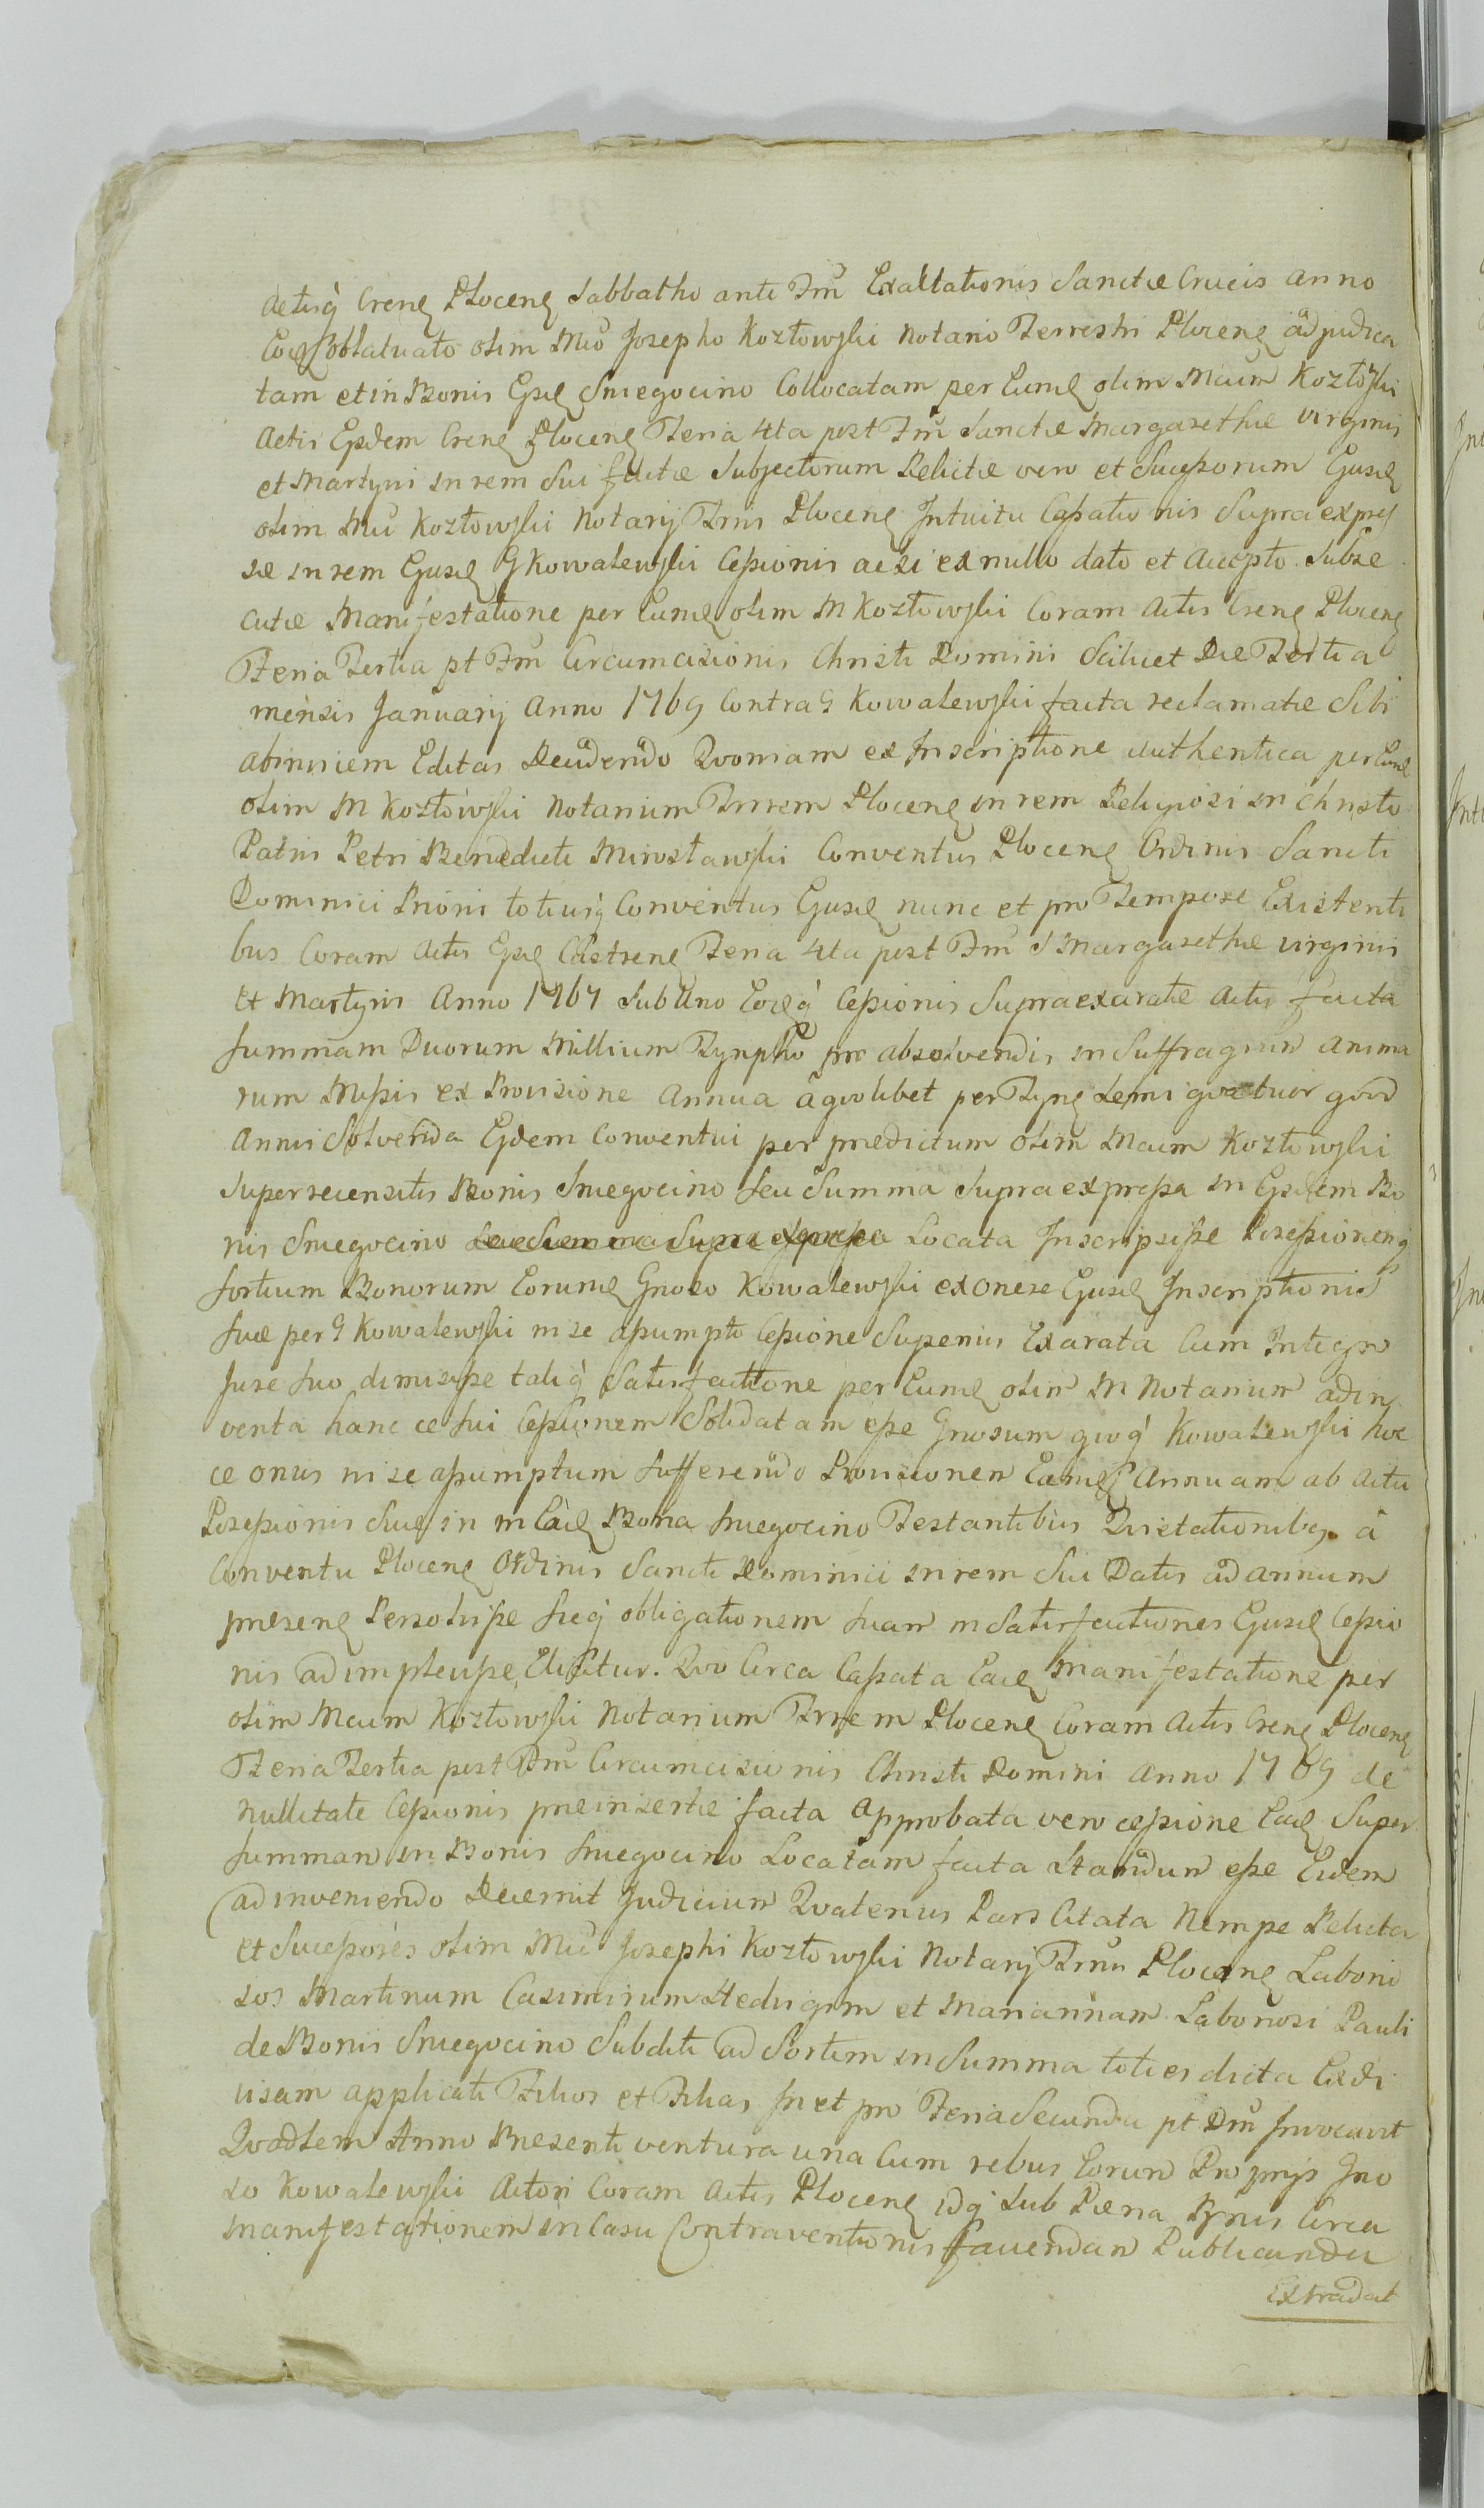 Actisq̀ Crenʒ Plocenʒ Sabbatho ante Fm̃ Exaltationis Sanctæ Crucis Anno
Eoʒ oblatuato olim Mco Josepho Kozłowski Notario Terrestri Plocenʒ adjudica
tam et in Bonis Ejsdʒ Sniegocino Collocatam per Eumdʒ olim Mcum Kozłoski
Actis Ejsdem Crenʒ Plocenʒ Feria 4ta post Fm̃ Sanctæ Margarethæ Virginis
et Martyris in rem Sui factæ Subjectorum Relictæ vero et Sucessorum Ejusdʒ
olim Mci Kozłowski Notarij Trris Plocenʒ Intuitu Cassatio nis Supra expres
sæ in rem Ejusdʒ G Kowalewski Cessionis ac si ex nullo dato et Accepto Subse
cutæ Manifestatione per Eumdʒ olim M Kozłowski Coram Actis Crenʒ Plocenʒ
Feria Tertia pt Fm̃ Circumcisionis Christi Domini Scilicet Die Tertia
mensis Januarij Anno 1769 Contra G Kowalewski facta reclamatæ Sibi
abinvicem Editas Decidendo Qvoniam ex Inscriptione authentica per Eumdʒ
olim M Kozłowski Notarium Trrem Plocenʒ in rem Religiosi in Christo
Patris Petri Benedicti Mirosławski Conventus Plocenʒ Ordinis Sancti
Dominici Prioris totiusq̀ Conventus Ejusdʒ nunc et pro Tempore Existenti
bus Coram Actis Ejsdʒ Castrenʒ Feria 4ta post Fm̃ S Margarethæ virginis
Et Martyris Anno 1767 Sub Uno Eodʒq̀ Cessionis Supra exaratæ Actu facta
Summam Duorum Millium Tynpho pro absolvendis in Suffragium Anima
rum Missis ex Provisione Annua a qvolibet per Tynʒ Semi qvatuor qvis
Annis Solvenda Ejdem Conventui per prædictum olim Mcum Kozłowski
Super recensitis Bonis Sniegocino Seu Summa Supra expressa in Ejsdem Bo
nis Sniegocino Locata Inscripsisse Possessionemq̀
Sortium Bonorum Eorumdʒ Gnoso Kowalewski ex onere Ejusdʒ Inscriptionis
Suæ per G Kowalewski in se assumpto Cessione Superius Exarata Cum Integro
Jure Suo dimisisse taliq̀ Satisfactione per Eumdʒ olim M Notarium adin
venta hanc ce Sui Cessionem Solidatam esse Gnosum qvoq̀ Kowalewski hoc
ce onus in se assumptum Sufferendo Provisionem Eamdʒ Annuam ab Actu
Possessionis Suæ in m Eadʒ Bona Sniegocino Testantibus Qvietationibʒ à
Conventu Plocenʒ Ordinis Sancti Dominici in rem Sui Datis ad annum
præsenʒ Persolvisse Sicq̀ obligationem Suam in Satisfactiones Ejusdʒ Cessio
nis adimplevisse Elicitur. Qvo Circa Cassata Eadʒ Manifestatione per
olim Mcum Kozłowski Notarium Trrem Plocenʒ Coram Actis Crenʒ Plocenʒ
Feria Tertia post Fm̃ Circumcisionis Christi Domini Anno 1769 de
Nullitate Cessionis præinsertæ facta Approbata vero cessione Eadʒ Super
Summam in Bonis Sniegocino Locatam facta Standum esse Eidem
adinveniendo Decernit Judicium Qvatenus Pars Citata Nempe Relicta
et Sucessores olim Mci Josephi Kozłowski Notarij Trris Plocenʒ Laborio
sos Martinum Casimirum Hedvigim et Mariannam Laboriosi Pauli
de Bonis Sniegocino Subditi ad Sortem in Summa toties dicta
visam applicati Filios et Filias In et pro Feria Secunda pt Dm̃ Invocavit
Qvadlem Anno Præsenti ventura una Cum rebus Eorum Proprijs Gno
so Kowalewski Actori Coram Actis Plocenʒ idq̀ Sub Pœna Circa
Manifestationem in Casu Contraventionis Publicanda
Extradat